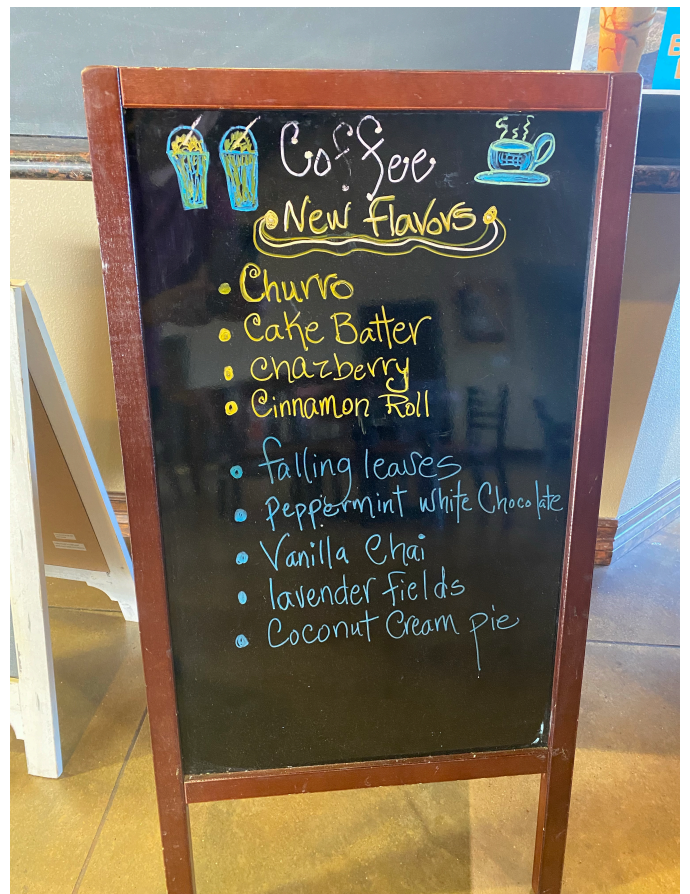 Coffee
New Flavors
• Churro
• Cake Batter
• Chazberry
• Cinnamon Roll
• falling leaves
• Peppermint White Chocolate
• Vanilla Chai
• lavender fields
• Coconut Cream pie